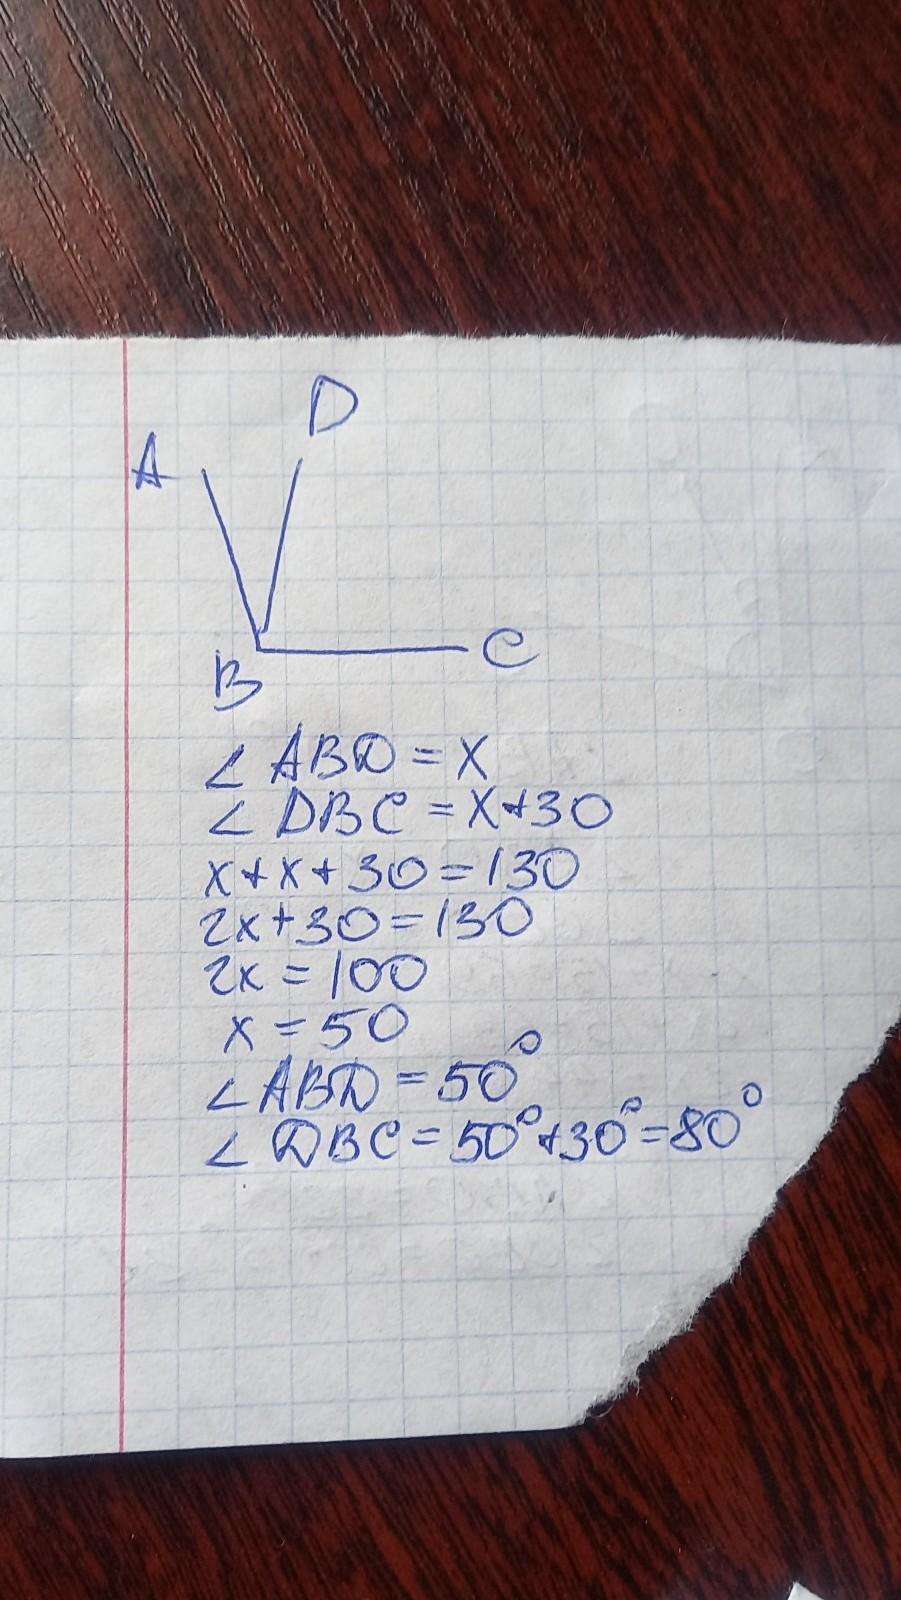 D
A
B
C
∠ ABD = x
∠ DBC = x+30
x+x+30=130
2x+30=130
2x = 100
x = 50
∠ABD = 50°
∠ DBC = 50°+30°=80°